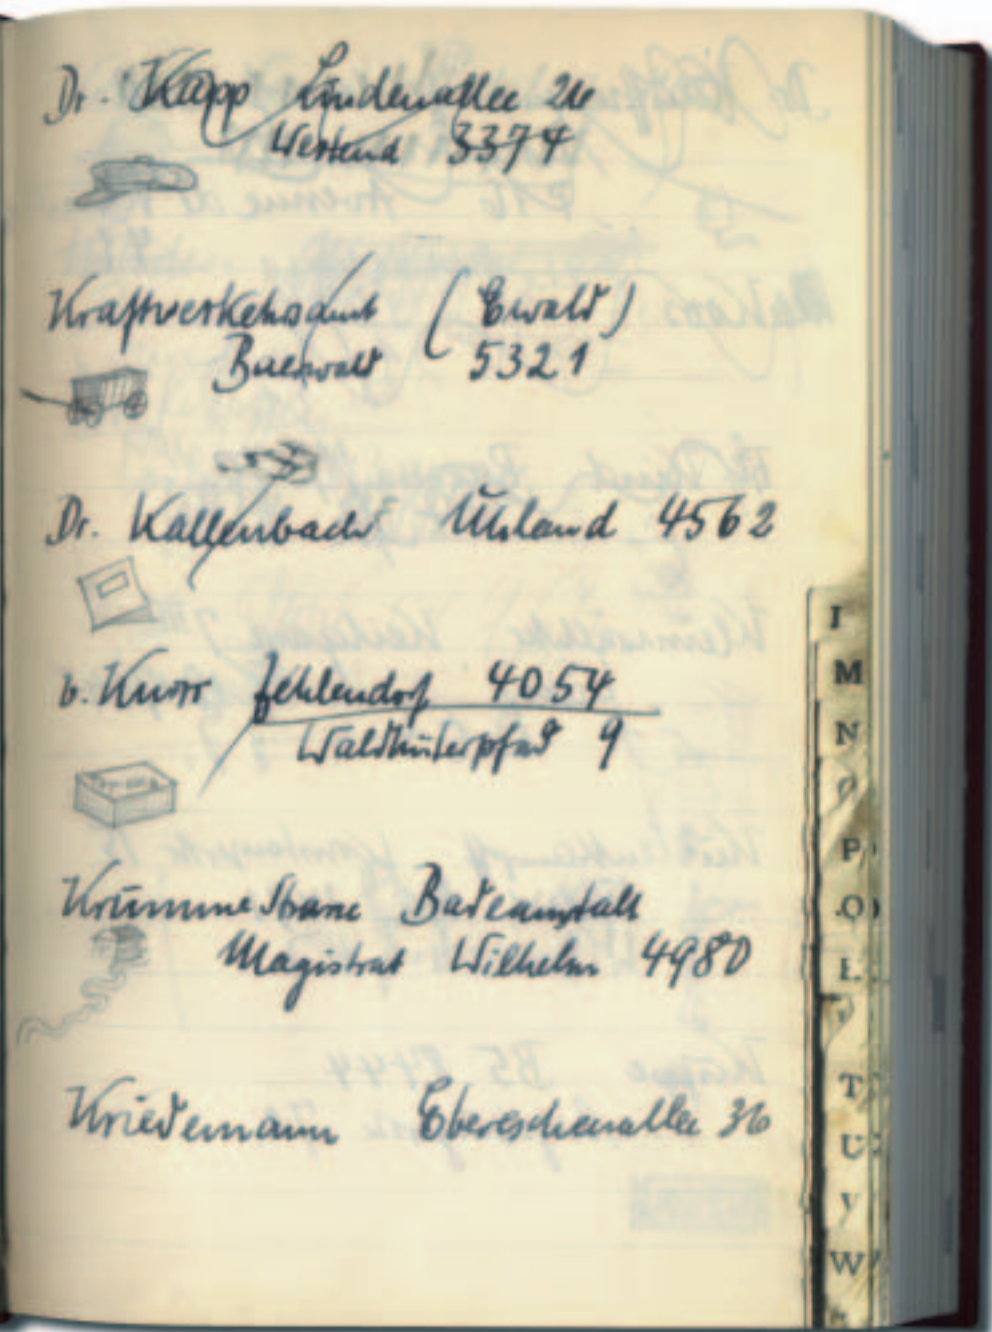 Dr. Kapp Lindenallee 26
Westend 3374
Kraftverkehrsamt (Ewald)
Baerwald 5321
Dr. Kallenbach Uhland 4562
b. Knorr Zehlendorf 4054
Waldhüterpfad 9
Krumme Strasse Badeanstalt
Magistrat Wilhelm 4980
Kriedemann Ebereschenallee 36
I
M
N
O
P
Q
T
U
W